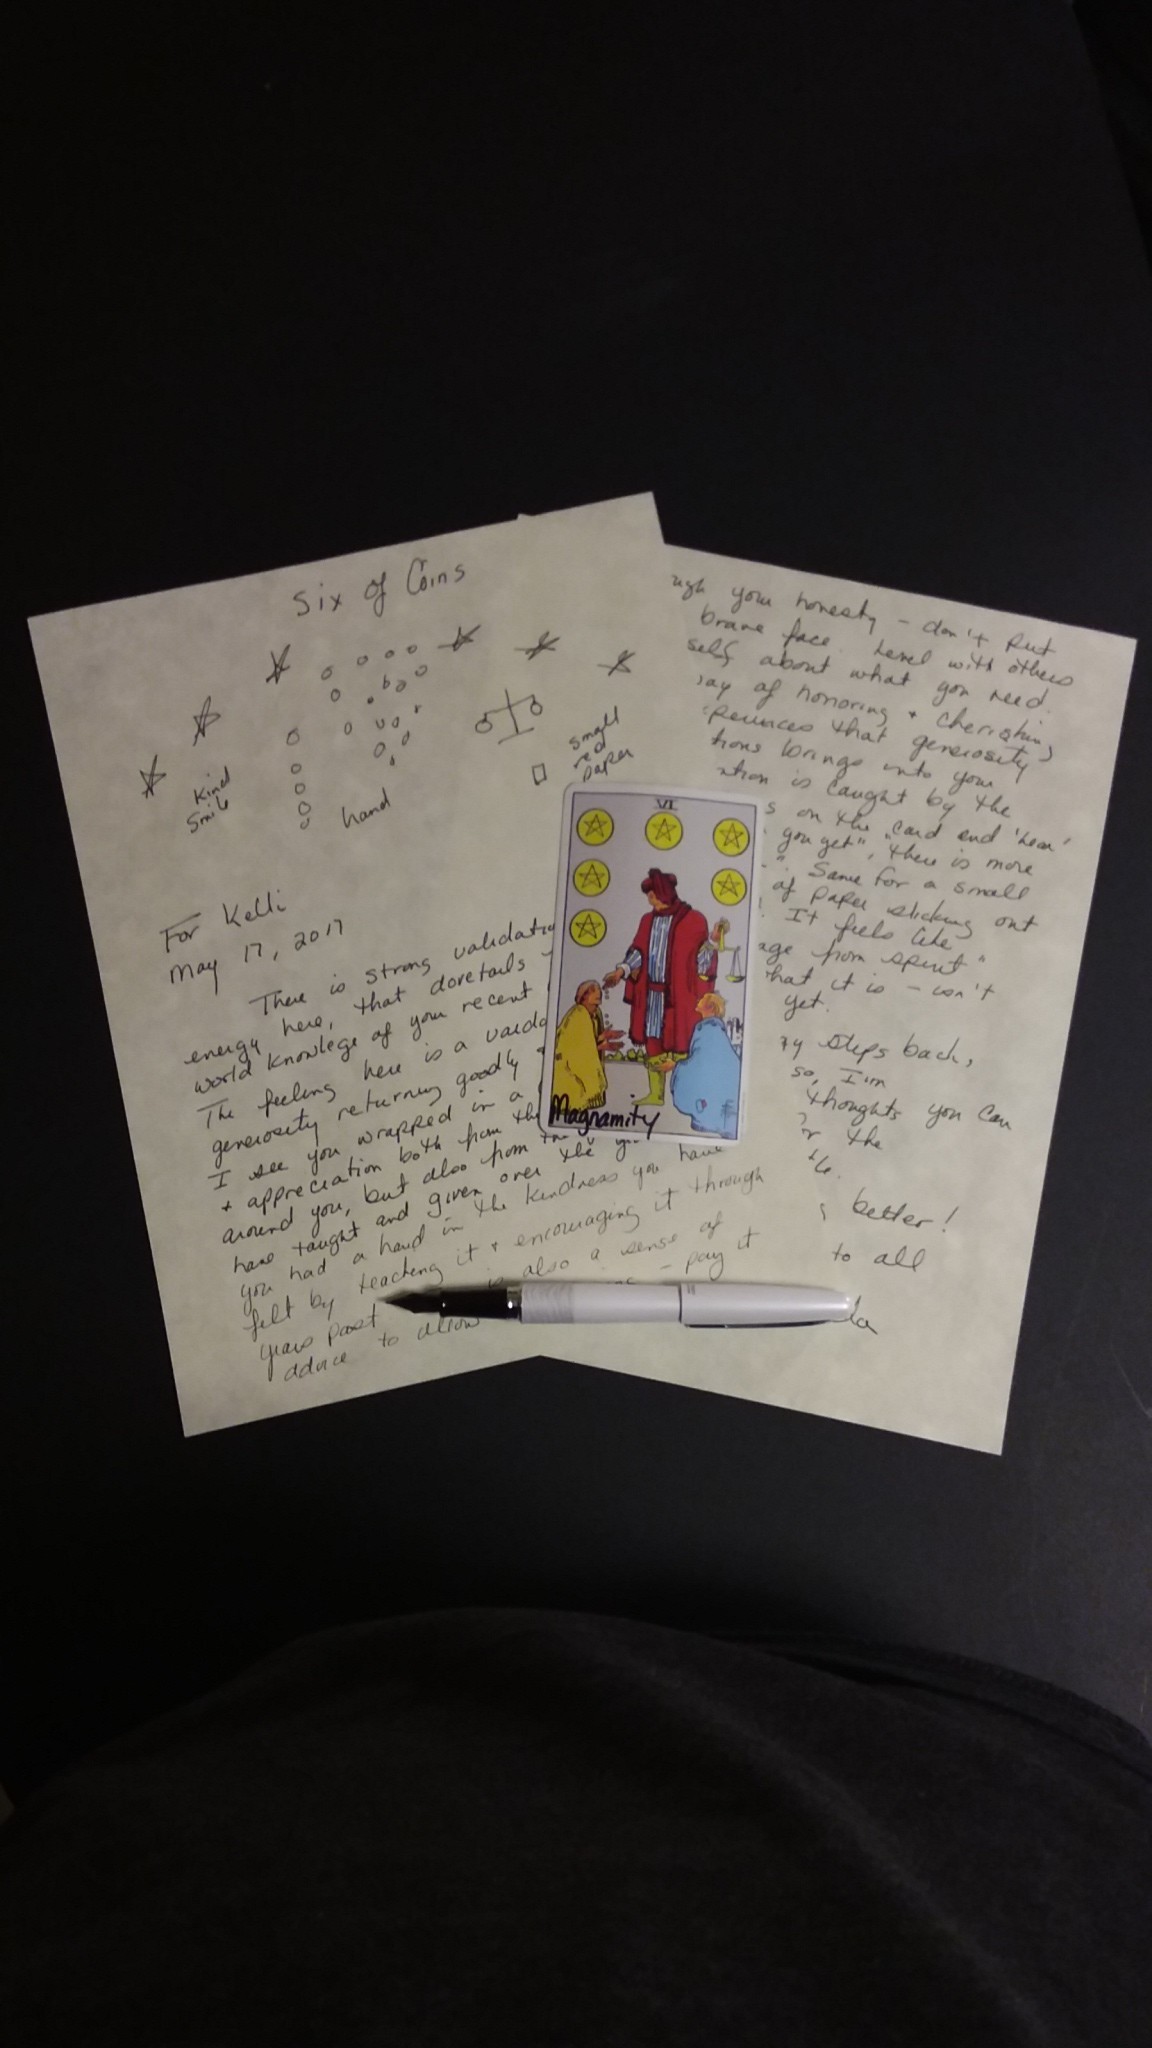 Six of Coins
Kind
Smile
hand
small
red
paper
For Kelli
May 17, 2017
There is strong validation
here, that dovetails
energy
world knowlege of your recent
The feeling here is a
generosity returning goodly
I see you wrapped in a
+ appreciation both from the
around you, but also from
have taught and given over the
you had a hand in the kindness you have
felt by teaching it + encouraging it through
years past is also a sense of
advice to allow - pay it
VI
Magnamity
your honesty - don't put
brave face. Level with others
self about what you need.
of honoring + cherishing
that generosity
brings into your
is caught by the
on the card and 'hear'
you get", "there is more
Same for a small
of paper sticking out
It feels like
from spirit"
what it is - isn't
yet.
steps back,
so, I'm
thoughts you can
the
better!
to all